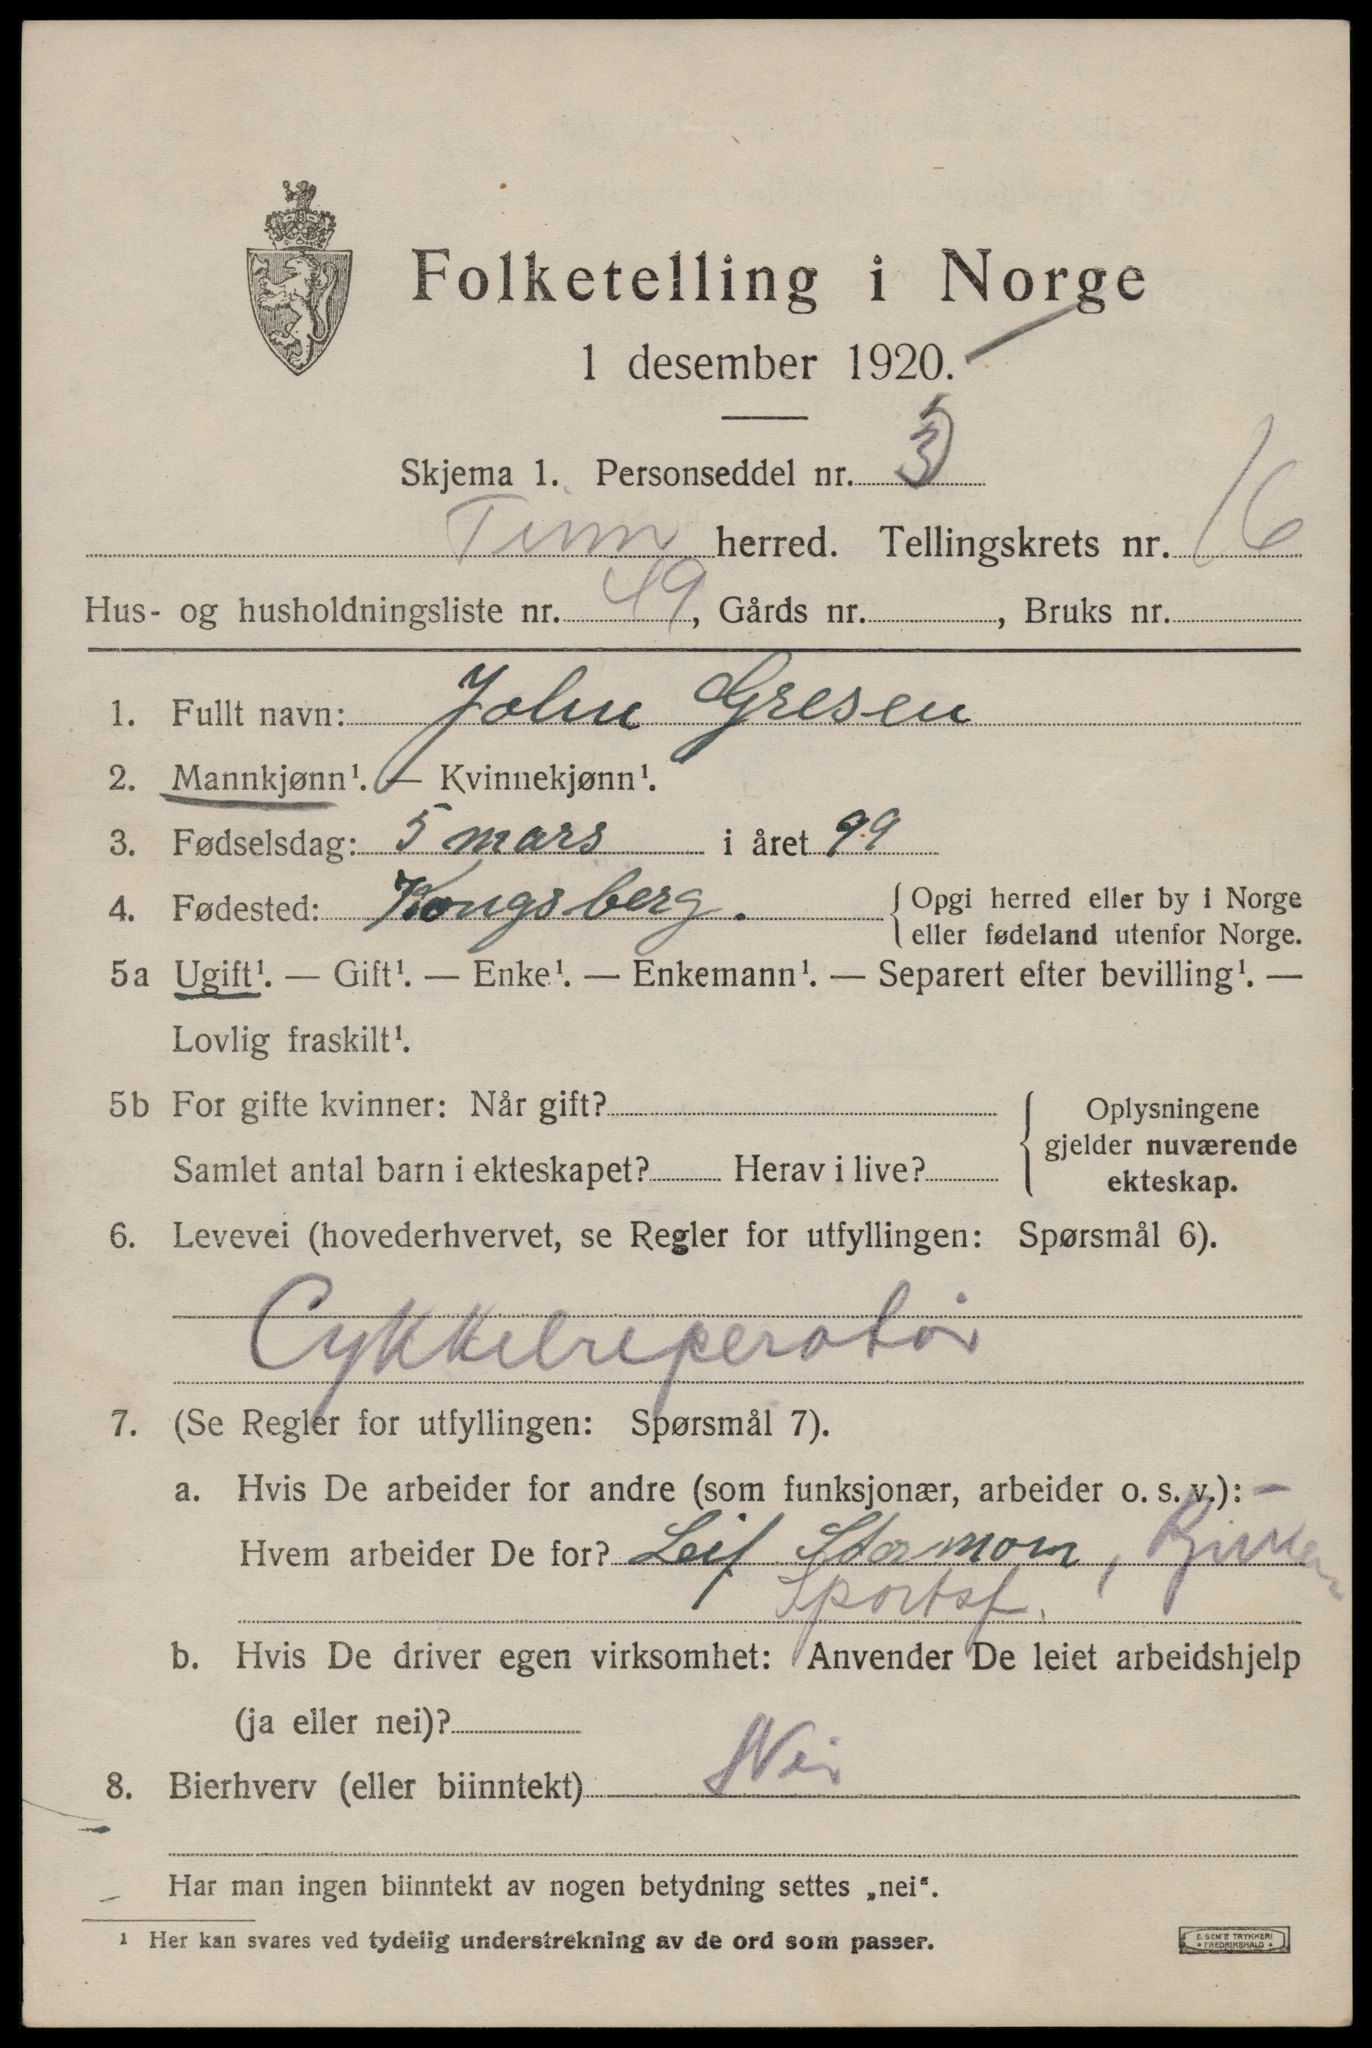 Folketelling i Norge
1 desember 1920.
Skjema 1. Personseddel nr. 3
Tinn herred. Tellingskrets nr. 16
Hus- og husholdningsliste nr. 49, Gårds nr. , Bruks nr.
1. Fullt navn: John Gresen
2. Mannkjønn¹. — Kvinnekjønn¹.
3. Fødselsdag: 5 mars i året 99
4. Fødested: Kongsberg. { Opgi herred eller by i Norge
eller fødeland utenfor Norge.
5a Ugift¹. — Gift¹. — Enke¹. — Enkemann¹. — Separert efter bevilling¹. —
Lovlig fraskilt¹.
5b For gifte kvinner: Når gift?
Samlet antal barn i ekteskapet? Herav i live?
Oplysningene
gjelder nuværende
ekteskap.
6. Levevei (hovederhvervet, se Regler for utfyllingen: Spørsmål 6).
Cykkelreperatør
7. (Se Regler for utfyllingen: Spørsmål 7).
a. Hvis De arbeider for andre (som funksjonær, arbeider o. s. v.):
Hvem arbeider De for? Leif Stormom,
Sportsf.
b. Hvis De driver egen virksomhet: Anvender De leiet arbeidshjelp
(ja eller nei)?
8. Bierhverv (eller biinntekt) Nei
Har man ingen biinntekt av nogen betydning settes „nei".
¹ Her kan svares ved tydelig understrekning av de ord som passer.
E. SEM'S TRYKKERI
• FREDRIKSHALD •